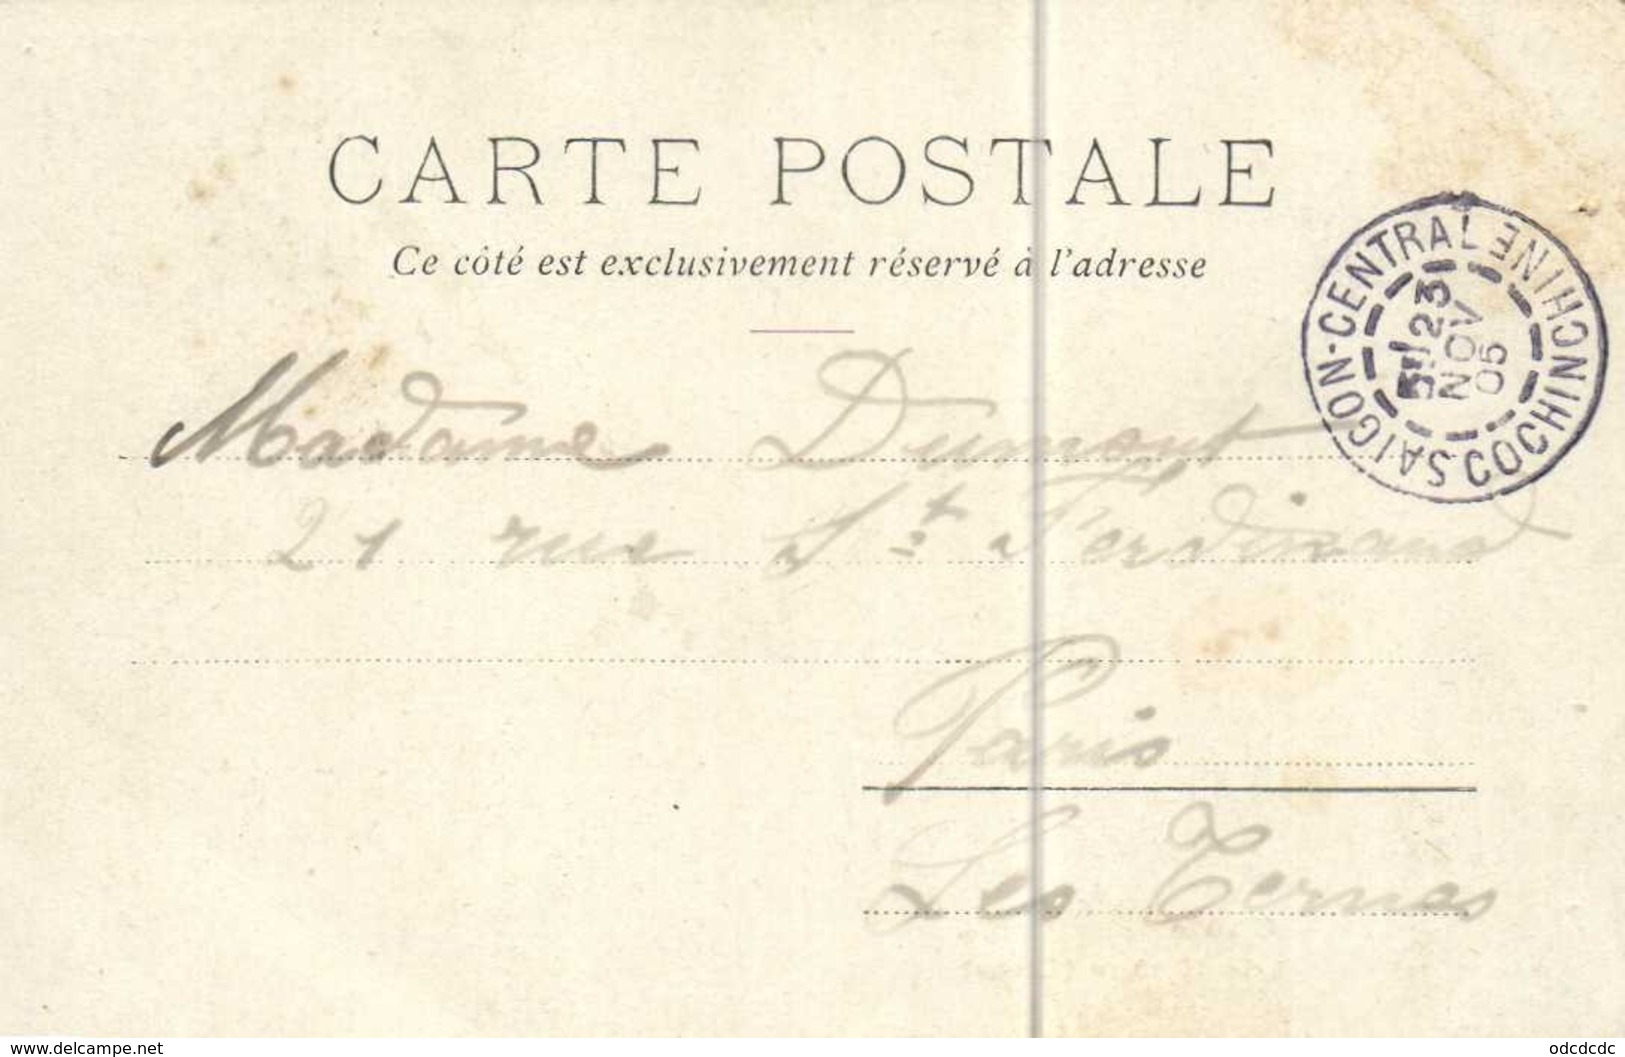 CARTE POSTALE
Ce côté est exclusivement réservé à l'adresse
SAIGON-CENTRAL COCHINCHINE
23
NOV
05
Madame Dumont
21 rue St Ferdinand
Paris
Les Ternes
www.delcampe.net
odcdcdc